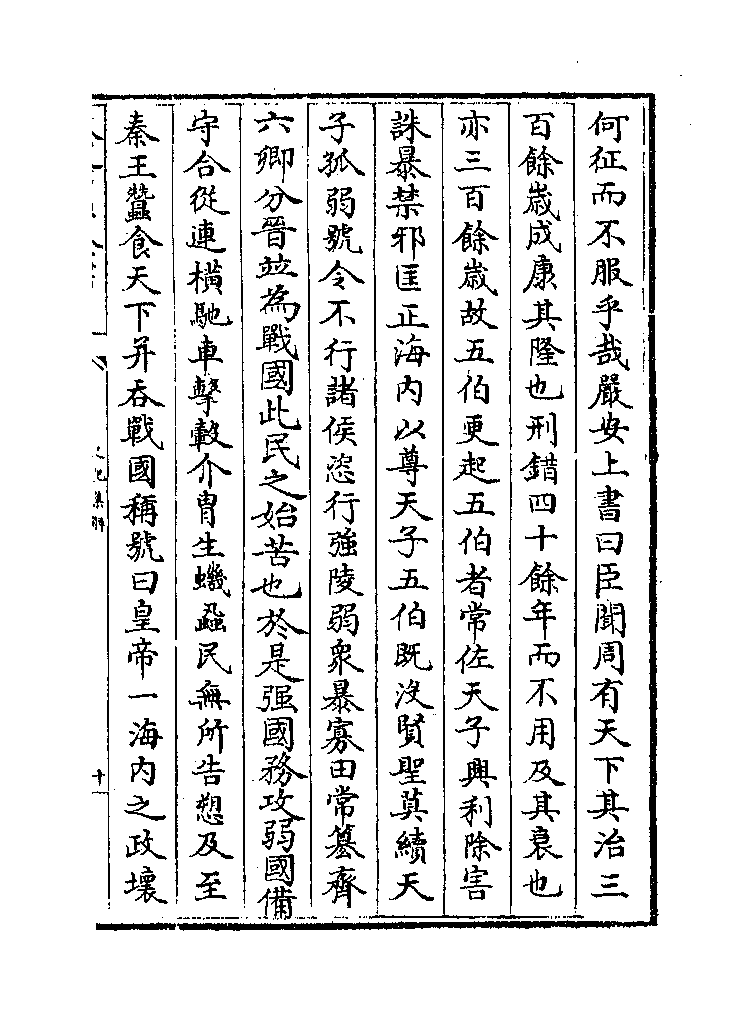 何征而不服乎哉嚴安上書曰臣聞周有天下其治三
百餘歲成康其隆也刑錯四十餘年而不用及其衰也
亦三百餘歲故五伯更起五伯者常佐天子興利除害
誅暴禁邪匡正海內以尊天子五伯既沒賢聖莫續天
子孤弱號令不行諸侯恣行強陵弱衆暴寡田常簒齊
六卿分晉並為戰國此民之始苦也於是强國務攻弱國備
守合從連橫馳車擊轂介胄生蟣蝨民無所告愬及至
秦王蠶食天下并吞戰國稱號曰皇帝一海內之政壞
史記集解
十一